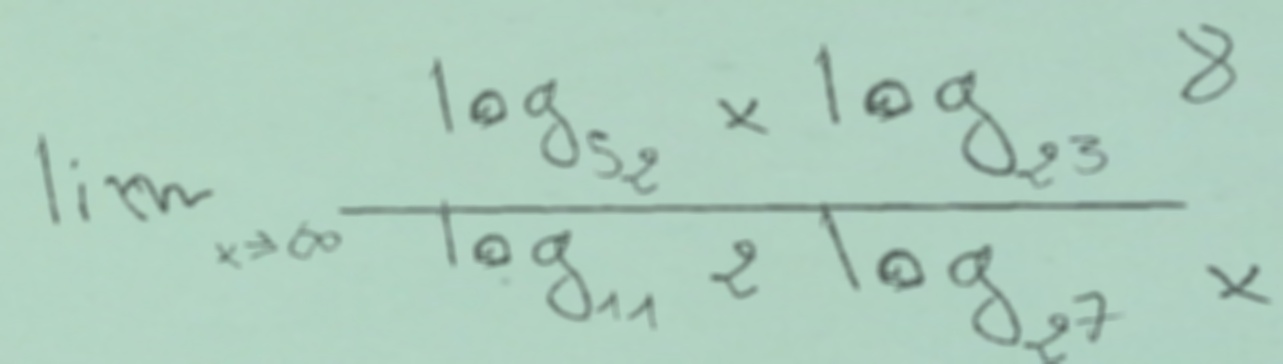 lim x→∞ (log₅₂ x log₂₃ 8) / (log₁₁ 2 log₂₇ x)